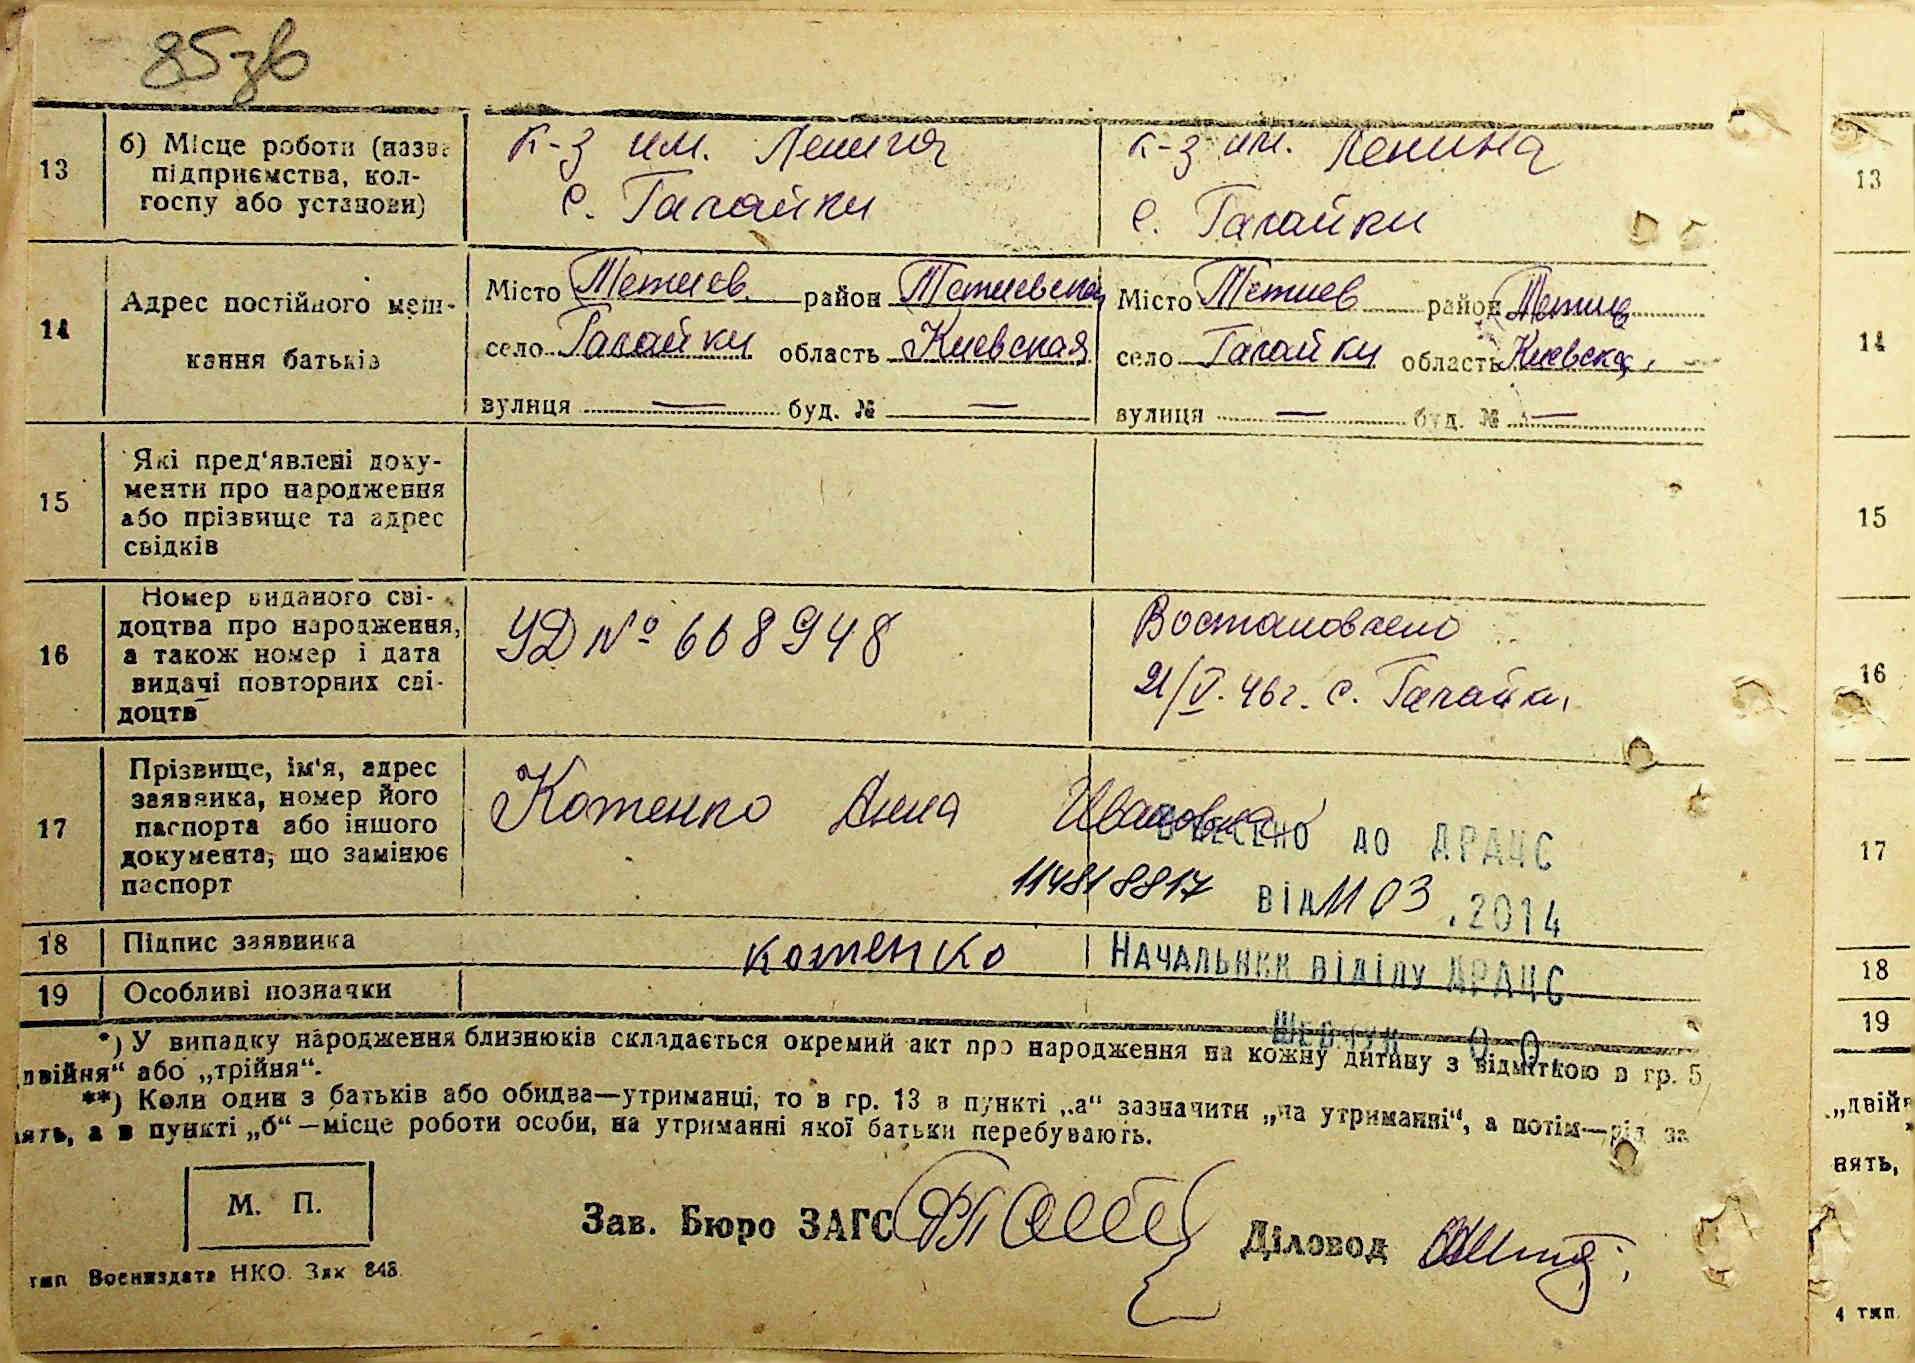 85зв
13
б) Місце роботи (назва підприємства, колгоспу або установи)
к-з им. Ленина
с. Галайки
к-з им. Ленина
с. Галайки
13
14
Адрес постійного меш-
кання батьків
Місто Тетиев район Тетиевская
село Галайки область Киевская
вулиця — буд. № —
Місто Тетиев район Тетиев
село Галайки область Киевская
вулиця — буд. № —
14
15
Які пред'явлені доку-
менти про народження
або прізвище та адрес
свідків
15
16
Номер виданого сві-
доцтва про народження,
а також номер і дата
видачі повторних сві-
доцтв
УД № 668948
Востановлено
21/V. 46 г. с. Галайки
16
17
Прізвище, ім'я, адрес
заявника, номер його
паспорта або іншого
документа, що замінює
паспорт
Котенко Анна Ивановна
114818817
ВНЕСЕНО ДО ДРАЦС
від 11 03 .2014
17
18
Підпис заявника
котенко
НАЧАЛЬНИК ВІДІЛУ ДРАЦС
18
19
Особливі позначки
ШЕВЧУК О О
19
*) У випадку народження близнюків складається окремий акт про народження на кожну дитину з відміткою в гр. 5
двійня“ або „трійня“.
**) Коли один з батьків або обидва—утриманці, то в гр. 13 в пункті „а“ зазначити „на утриманні“, а потім—рід за
нять, а в пункті „б“—місце роботи особи, на утриманні якої батьки перебувають.
„двій
нять,
М. П.
Зав. Бюро ЗАГС
Діловод
тип Воениздата НКО. Зак 848.
4 тип.